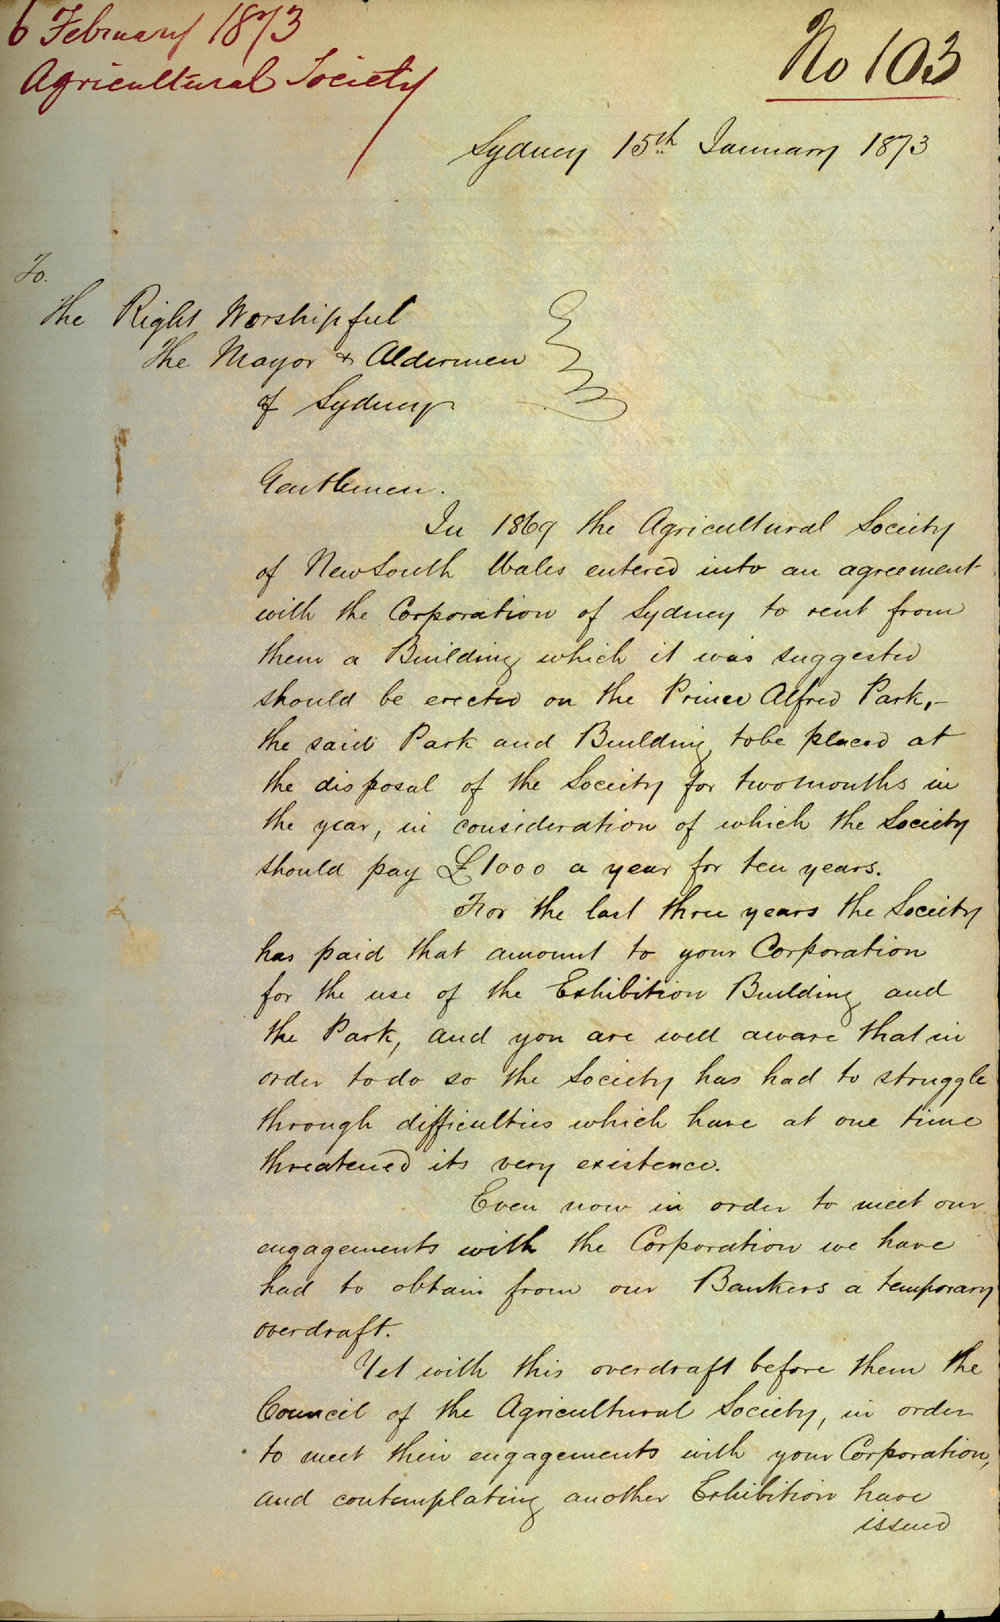 6 February 1873
Agricultural Society
No 103
Sydney 15th January 1873
To.
The Right Worshipful
The Mayor & Aldermen
of Sydney
Gentlemen.
In 1869 the Agricultural Society
of New South Wales entered into an agreement
with the Corporation of Sydney to rent from
them a Building which it was suggested
should be erected on the Prince Alfred Park,-
the said Park and Building, to be placed at
the disposal of the Society for two months in
the year, in consideration of which the Society
should pay £1000 a year for ten years.
For the last three years the Society
has paid that amount to your Corporation
for the use of the Exhibition Building and
the Park, and you are well aware that in
order to do so the Society has had to struggle
through difficulties which have at one time
threatened its very existence.
Even now in order to meet our
engagements with the Corporation we have
had to obtain from our Bankers a temporary
overdraft.
Yet with this overdraft before them the
Council of the Agricultural Society, in order
to meet their engagements with your Corporation,
and contemplating another Exhibition have
issued